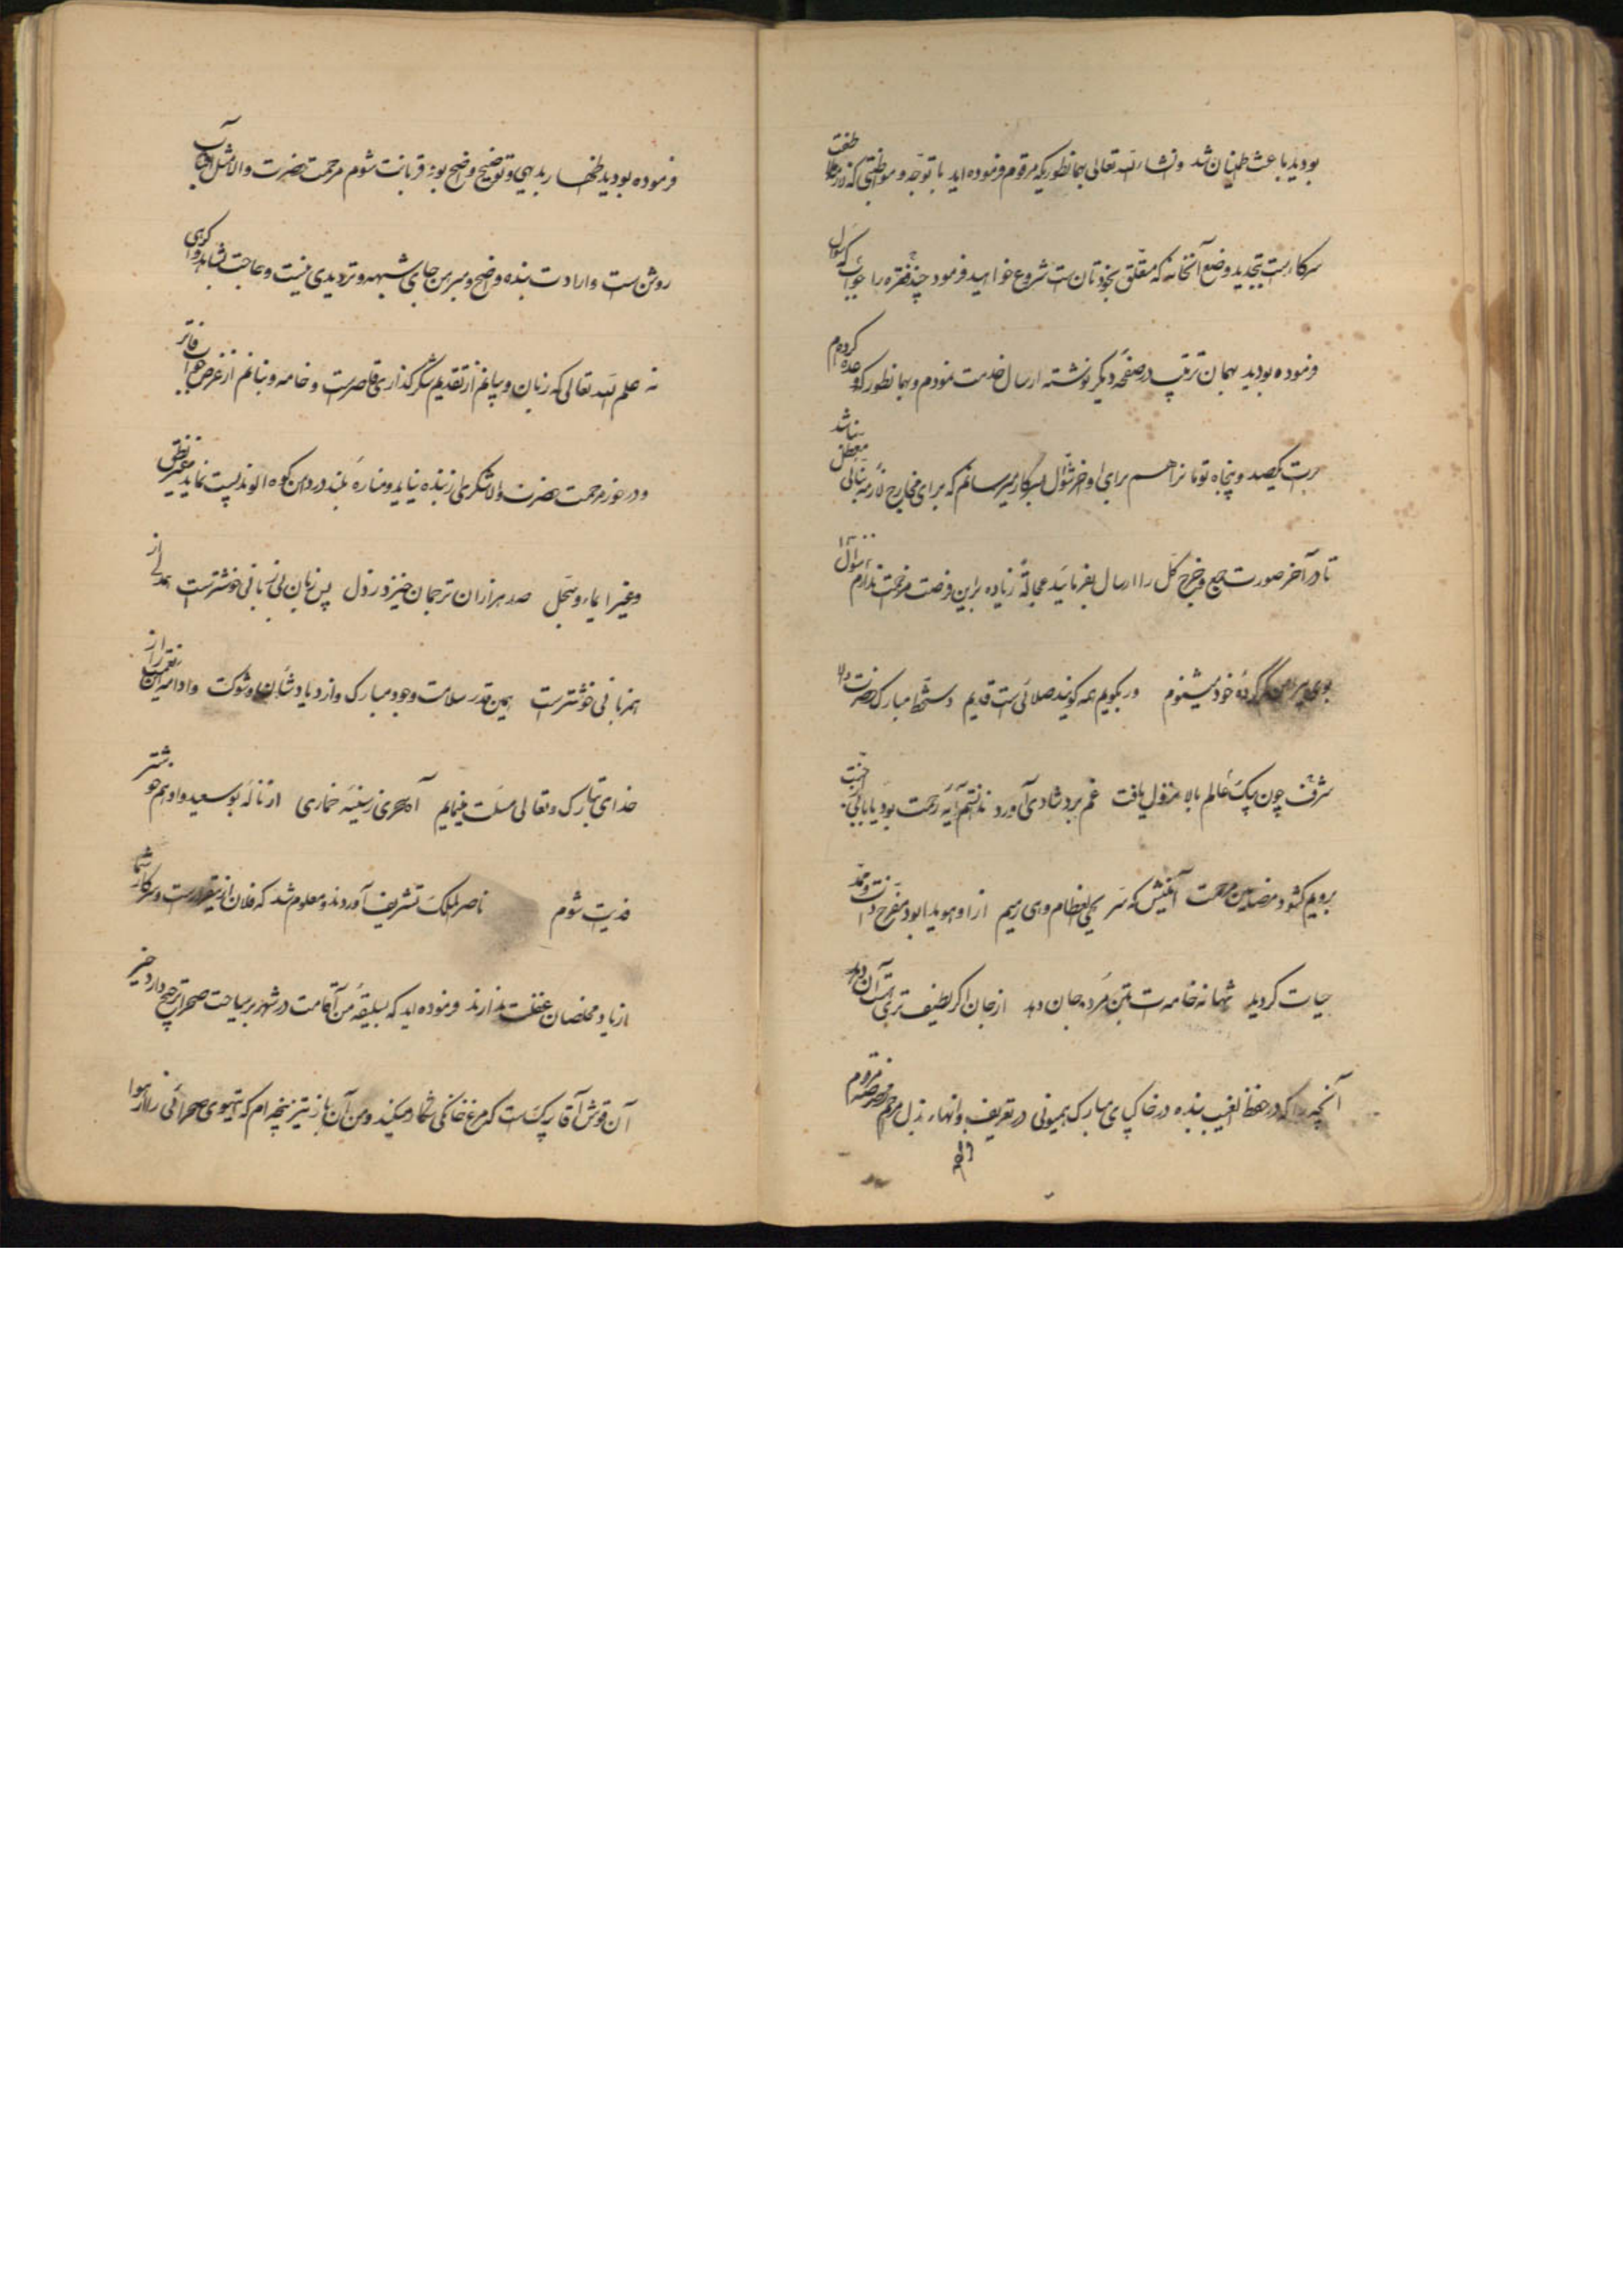 بودید باعث اطمینان شد و انشاء الله تعالی بهمانطوریکه مرقوم فرموده اید با توجه و مواظبتی که لازمهٔ
سرکارست بتجدید وضع آنخانه که متعلق بخودتان ست شروع خواهید فرمود چند فقره را جواب که سؤال
فرموده بودید بهمان ترتیب در صفحهٔ دیگر نوشته ارسال خدمت نمودم و بهمانطور که وعده کرده ام
یکصد و پنجاه تومانرا هم برای اواخر شوال بسرکار میرسانم که برای مخارج لازمه بنائی معطل نباشد
تا در آخر صورت جمع و خرج کل را ارسال بفرمائید عجالةً زیاده براین فرصت مزاحمت ندارم شوال
بوی پیراهن گم کردهٔ خود میشنوم ور بگویم همه گویند ضلالیست قدیم دستخط مبارک حضرت والا
شرف چون پیک عالم بالا نزول یافت غم برد شادی آورد ندانستم آیهٔ رحمت بود یا بابی از جنت
برویم گشود مضامین رحمت آئینش که سر یحیی العظام و هی رمیم از او هویدا بود مفرح ذات و ممد
حیات گردید شهانه خامه ات بتن مرده جان دهد از جان اگر لطیف تری هست آن دهد
آنچه را که در حفظ الغیب بنده در خاک پای مبارک همیونی در تعریف و انهاء بذل مرحمت مرقوم
فرموده بودید اظهار بدیهی و توضیح واضح بود قربانت شوم مرحمت حضرت والا مثل آفتاب
روشن ست و ارادت بنده واضح و مبرهن جای شبهه و تردیدی نیست و حاجت بشاهد و گواهی
نه علم الله تعالی که زبان و بیانم از تقدیم شکرگذاری قاصرست و خامه و بنانم از عرض فاتر
و درخور مرحمت حضرت والا شکری از بنده نیاید و منارهٔ بلند در دامن کوه الوند پست نماید غیر نطق
و غیر ایماء و سجل صد هزاران ترجمان خیزد ز دل پس زبان بی زبانی خوشترست همدلی از
همزبانی خوشترست همین قدر سلامت وجود مبارک و ازدیاد شان و شوکت و ادامه نعمت را از
خدای تبارک و تعالی مسئلت مینمایم آه سحری ز سینه خماری از نالهٔ بوسعید و ادهم خوشتر
فدیت شوم ناصر الملک تشریف آوردند و معلوم شد که فلان ازینقرارست و سرکار شما
از یاد مخلصان غفلت ندارند فرموده اید که بسلیقهٔ من اقامت در شهر بر سیاحت صحرا ترجیح دارد خیر
آن قوش آقا بیک ست که مرغ خانگی شکار میکند و من آن باز تیز پنجه ام که تیهوی صحرائی را از هوا